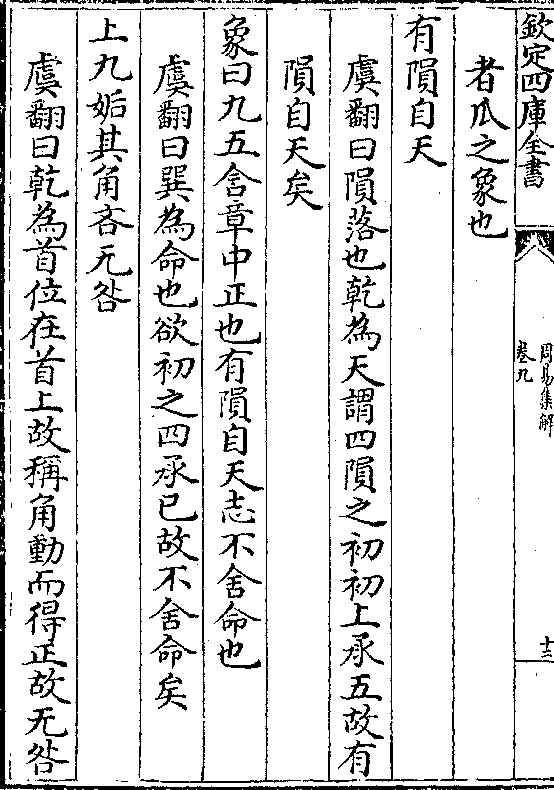 欽定四庫全書
周易集解
卷九
十三
者瓜之象也
有隕自天
虞翻曰隕落也乾為天謂四隕之初初上承五故有
隕自天矣
象曰九五含章中正也有隕自天志不舍命也
虞翻曰巽為命也欲初之四承已故不舍命矣
上九姤其角吝无咎
虞翻曰乾為首位在首上故稱角動而得正故无咎